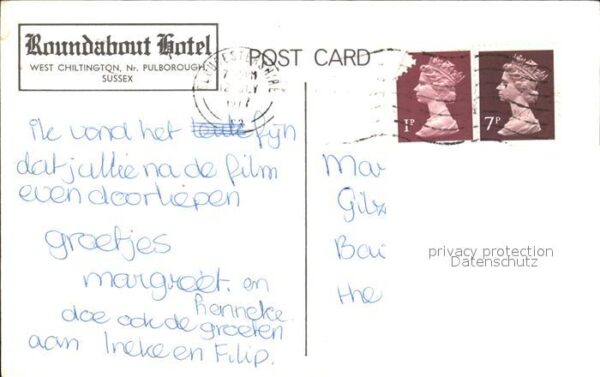 Roundabout Hotel
WEST CHILTINGTON, Nr. PULBOROUGH,
SUSSEX
POST CARD
1P
7P
Ik vond het leuke fijn
dat jullie na de film
even doorliepen
groetjes
margreet. en
Renneke
doe ook de groeten
aan Ineke en Filip.
Mar
Gilz
Bai
the
privacy protection
Datenschutz